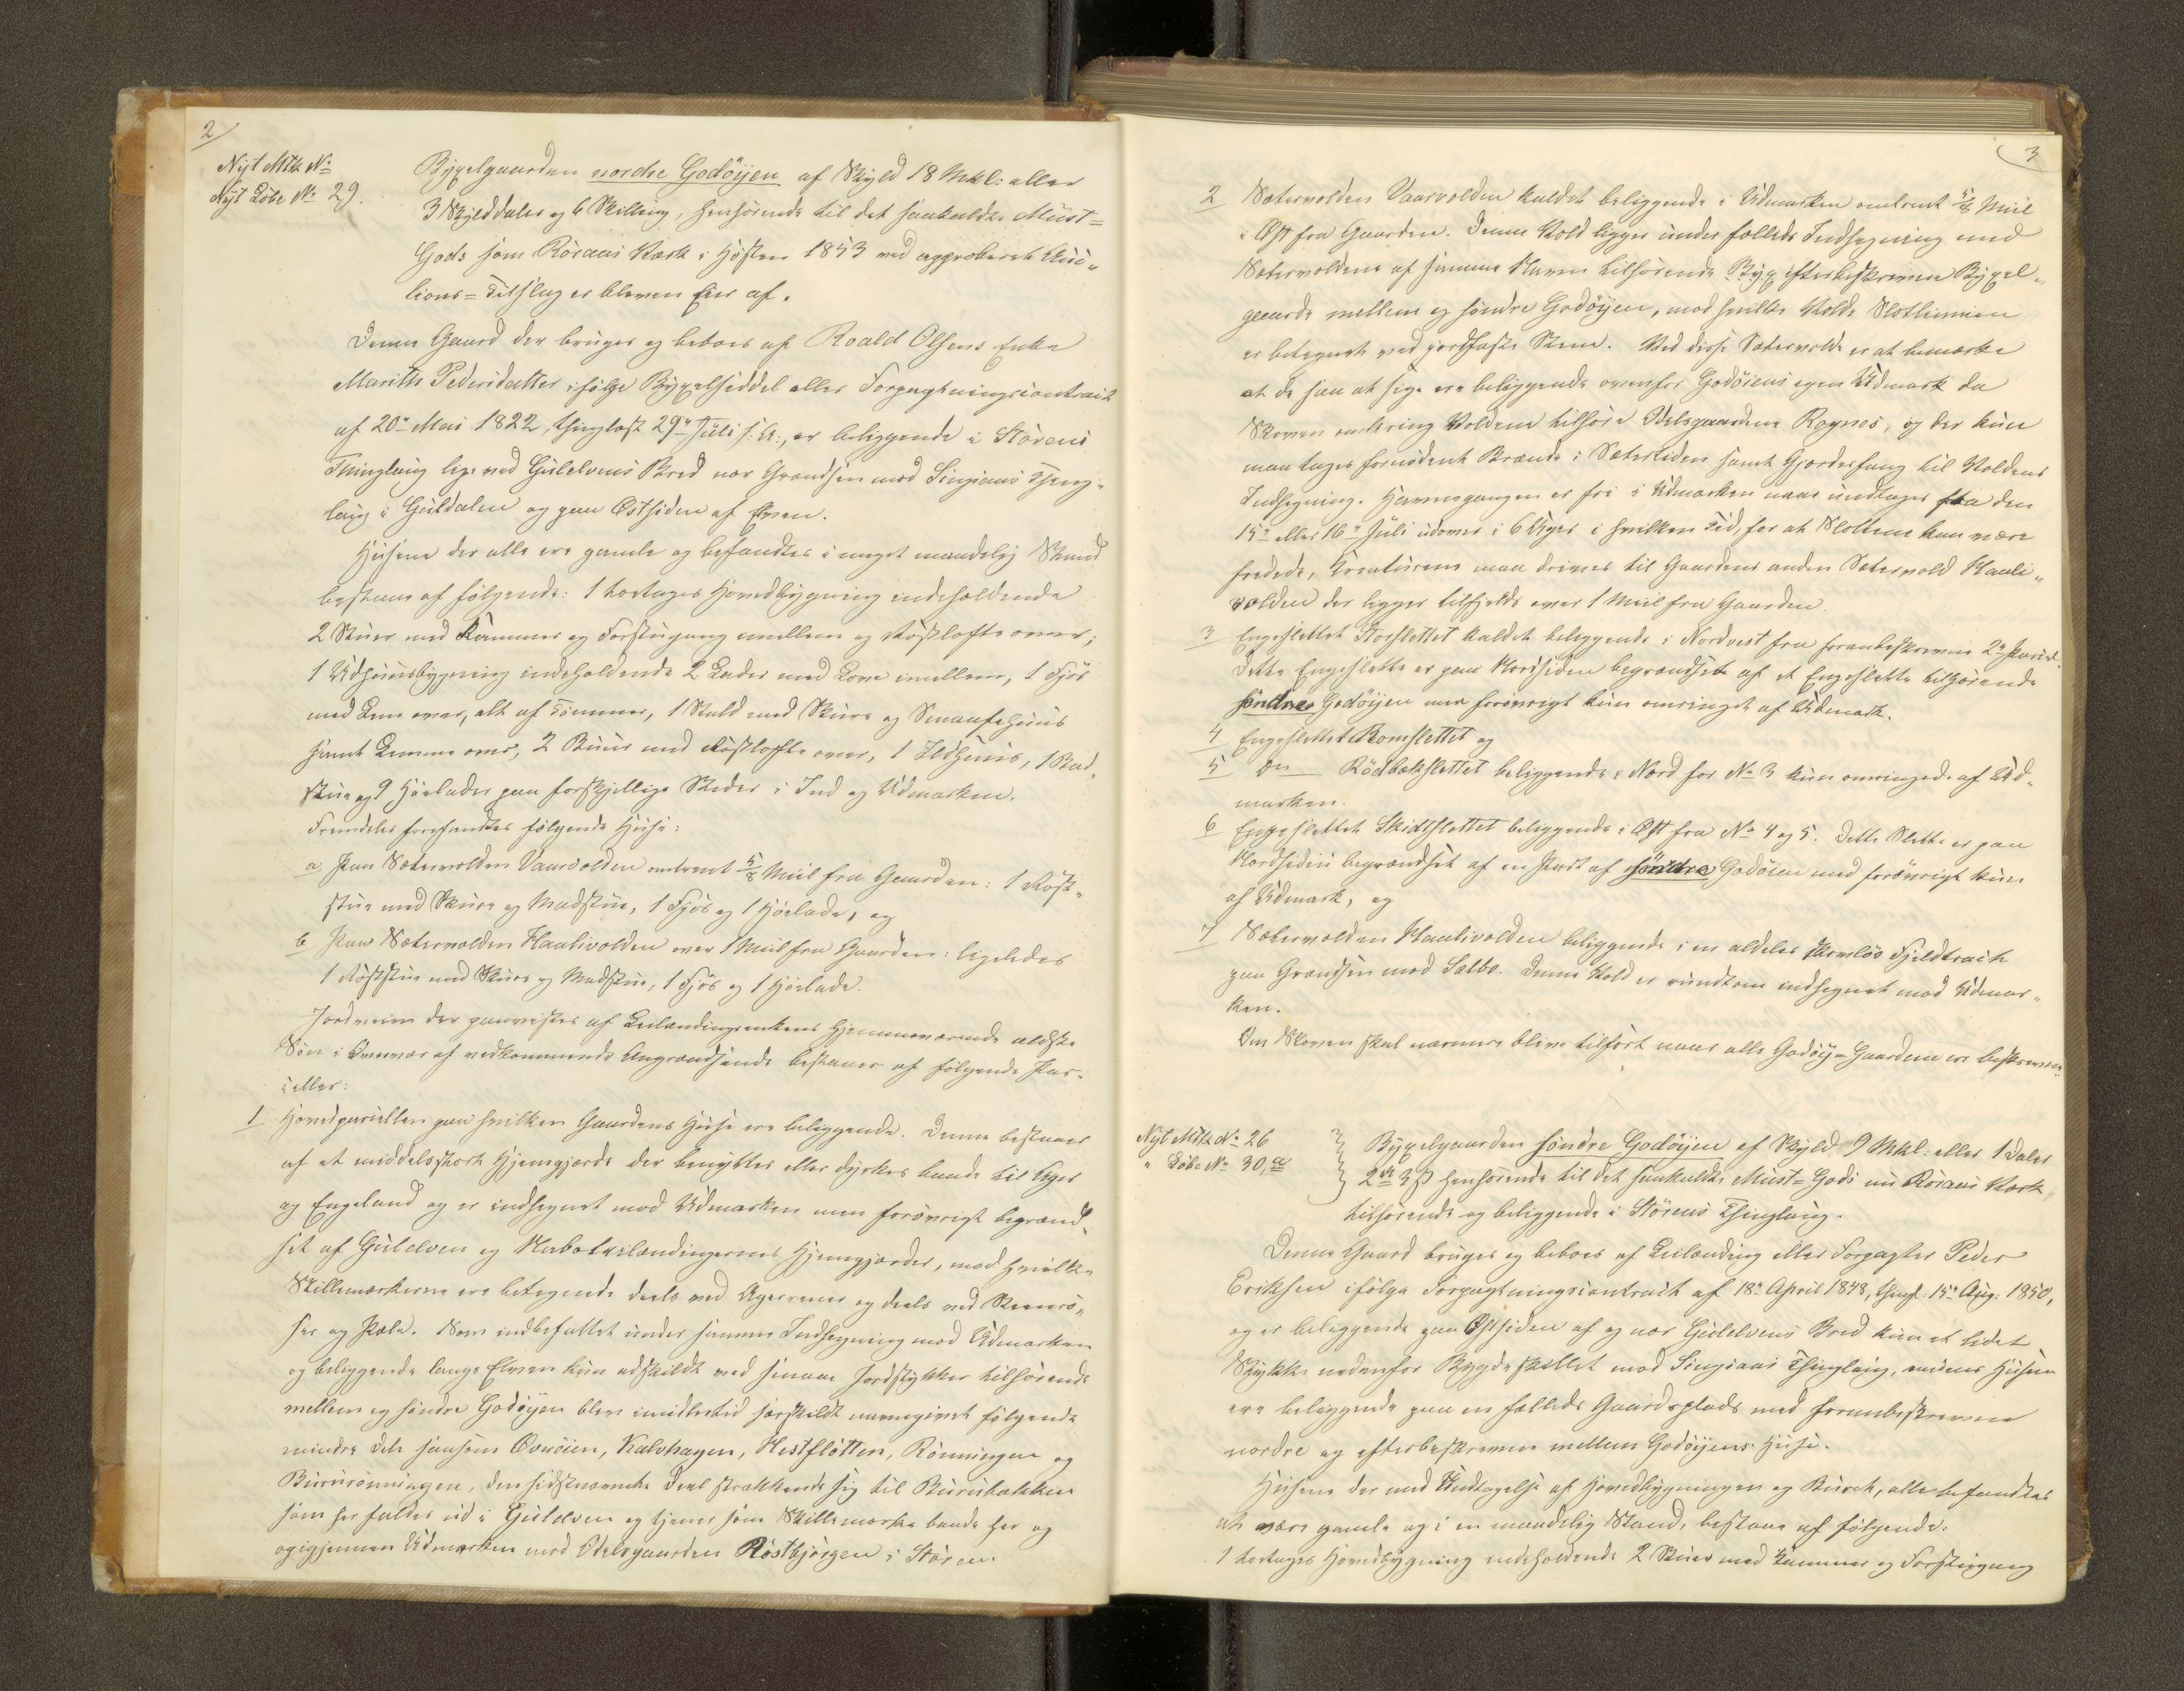 2/
Nyt Mtk No
Nyt Löbe No 29.
Byxelgaarden nordre Godöyen af Skyld 18 Mkl: eller
3 Skylddaler og 6 Skilling, henhörende til det saakaldte Müst=
Gods som Röraas Værk i Hösten 1853 ved approberet Auc„
tions=Tilslag er bleven Eier af.
Denne Gaard der bruges og beboes af Roald Olsens Enke
Marith Pedersdatter ifölge Byxelseddel eller Forpagtningscontract
af 20de Mai 1822, thinglæst 29de Juli s. A:, er beliggende i Störens
Thinglaug lige ved Gulelvens Bred nær Grændsen mod Singsaas Thing„
laug i Guldalen og paa Østsiden af Elven.
Husene der alle ere gamle og befandtes i meget maadelig Stand
bestaae af fölgende: 1 toetages Hovedbygning indeholdende
2 Stuer med Kammer og Forstugang mellem og Röstlofte over;
1 Udhuusbygning indeholdende 2 Lader med Love imellem, 1 Fjös
med Lem over, alt af Tömmer, 1 Stald med Skure og Smaafæhuus
samt Lemme over, 2 Buur med Röstlofte over, 1 Ildhuus, 1 Bad„
stue og 9 Höelader paa forskjellige Steder i Ind og Udmarken.
Fremdeles forefandtes fölgende Huse:
a Paa Sætervolden Vaarvolden omtrent 5/8 Miil fra Gaarden: 1 Röst„
stue med Skure og Madstue, 1 Fjös og 1 Höelade, og
b Paa Sætervolden Haulivolden over 1 Miil fra Gaarden: ligeledes
1 Röststue med Skure og Madstue, 1 Fjös og 1 Höelade.
Jordveien der paavistes af Leilændingsenkens hjemmeværende ældste
Sön i Overvær af vedkommende Angrændsende bestaaer af fölgende Par„
celler:
1 Hovedparcellen paa hvilken Gaardens Huse ere beliggende. Denne bestaaer
af et middelsstort Hjemgjærde der benyttes eller dyrkes baade til Ager
og Engeland og er indhegnet mod Udmarken men forövrigt begrænd„
set af Gulelven og Naboleilændingernes Hjemgjærder, mod hvilke
Skillemærkerne ere betegnede deels ved Agerrener og deels ved Steenrö„
ser og Pæle. Som indbefattet under samme Indhegning mod Udmarken
og beliggende langs Elven kun adskildt ved smaae Jordstykker tilhörende
mellem og söndre Godöyen blev imidlertid særskildt navngivet fölgende
mindre Dele saasom Øvreöien, Kalvhagen, Hestflötten, Rönningen og
Burusrönningen, den sidstnævnte Deel strækkende sig til Burusbækken
som her falder ud i Gulelven og tjener som Skillemærke baade her og
opigjennem Udmarken mod Odelsgaarden Röstbjörgen i Stören.
3
2 Sætervolden Vaarvolden kaldet beliggende i Udmarken omtrent 5/8 Miil
i Øst fra Gaarden. Denne Vold ligger under fælleds Indhegning med
Sætervoldene af samme Navn tilhörende efterbeskrevne Byxel„
gaarde mellem og söndre Godöyen, mod hvilke Volde Slotlinien
er betegnet ved jordfaste Stene. Ved disse Sætervolde er at bemærke
at de saa at sige ere beliggende ovenfor Godöiens egen Udmark da
Skoven omkring Voldene tilhöre Odelsgaardene Rognes, og der kun
maa tages fornödent Brænde i Sætertiden samt Gjærdefang til Voldens
Indhegning. Havnegangen er fri i Udmarken naar undtages fra den
15de eller 16de Juli udover i 6 Uger i hvilken Tid, for at Slottene kan være
fredede, Kreaturene maa drives til Gaardens anden Sætervold Hauli„
volden der ligger tilfjelds over 1 Miil fra Gaarden.
3 Engeslettet Storslettet kaldet beliggende i Nordvest fra foranbeskrevne 2de Parcel.
Dette Engeslette er paa Nordsiden begrændset af et Engeslette tilhörende
söndre Godöyen men forövrigt kun omringet af Udmark.
4 Engeslettet Romslettet og
5 Do Rödbækslettet beliggende i Nord for No 3 kun omringede af Ud„
marken.
6 Engeslettet Skidtslettet beliggende i Øst fra No 4 og 5. Dette Slette er paa
Nordsiden begrændset af en Part af söndre Godöien med forövrigt kun
af Udmark, og
7 Sætervolden Haulivolden beliggende i en aldeles skovlös Fjeldtract
paa Grændsen mod Sælbo. Denne Vold er rundtom indhegnet mod Udmar„
ken.
Om Skoven skal nærmere blive tilfört naar alle Godöy=Gaardene ere beskrevne.
Nyt Mtk No 26
" Löbe No 30,a
Byxelgaarden söndre Godöyen af Skyld 9 Mkl: eller 1 Daler
2 3 ß henhörende til det saakaldte Müst=Gods nu Röraas Værk
tilhörende og beliggende i Störens Thinglaug.
Denne Gaard bruges og beboes af Leilænding eller Forpagter Peder
Eriksen ifölge Forpagtningscontract af 18de April 1848, thingl: 15de Aug: 1850,
og er beliggende paa Østsiden af og nær Gulelvens Bred kun et lidet
Stykke nedenfor Bygdeskillet mod Singsaas Thinglaug, medens Husene
ere beliggende paa en fælleds Gaardsplads med foranbeskrevne
nordre og efterbeskrevne mellem Godöyens Huse.
Husene der med Undtagelse af Hovedbygningen og Buret, alle befandtes
at være gamle og i en maadelig Stand, bestaae af fölgende:
1 toetages Hovedbygning indeholdende 2 Stuer med Kammer og Forstugang